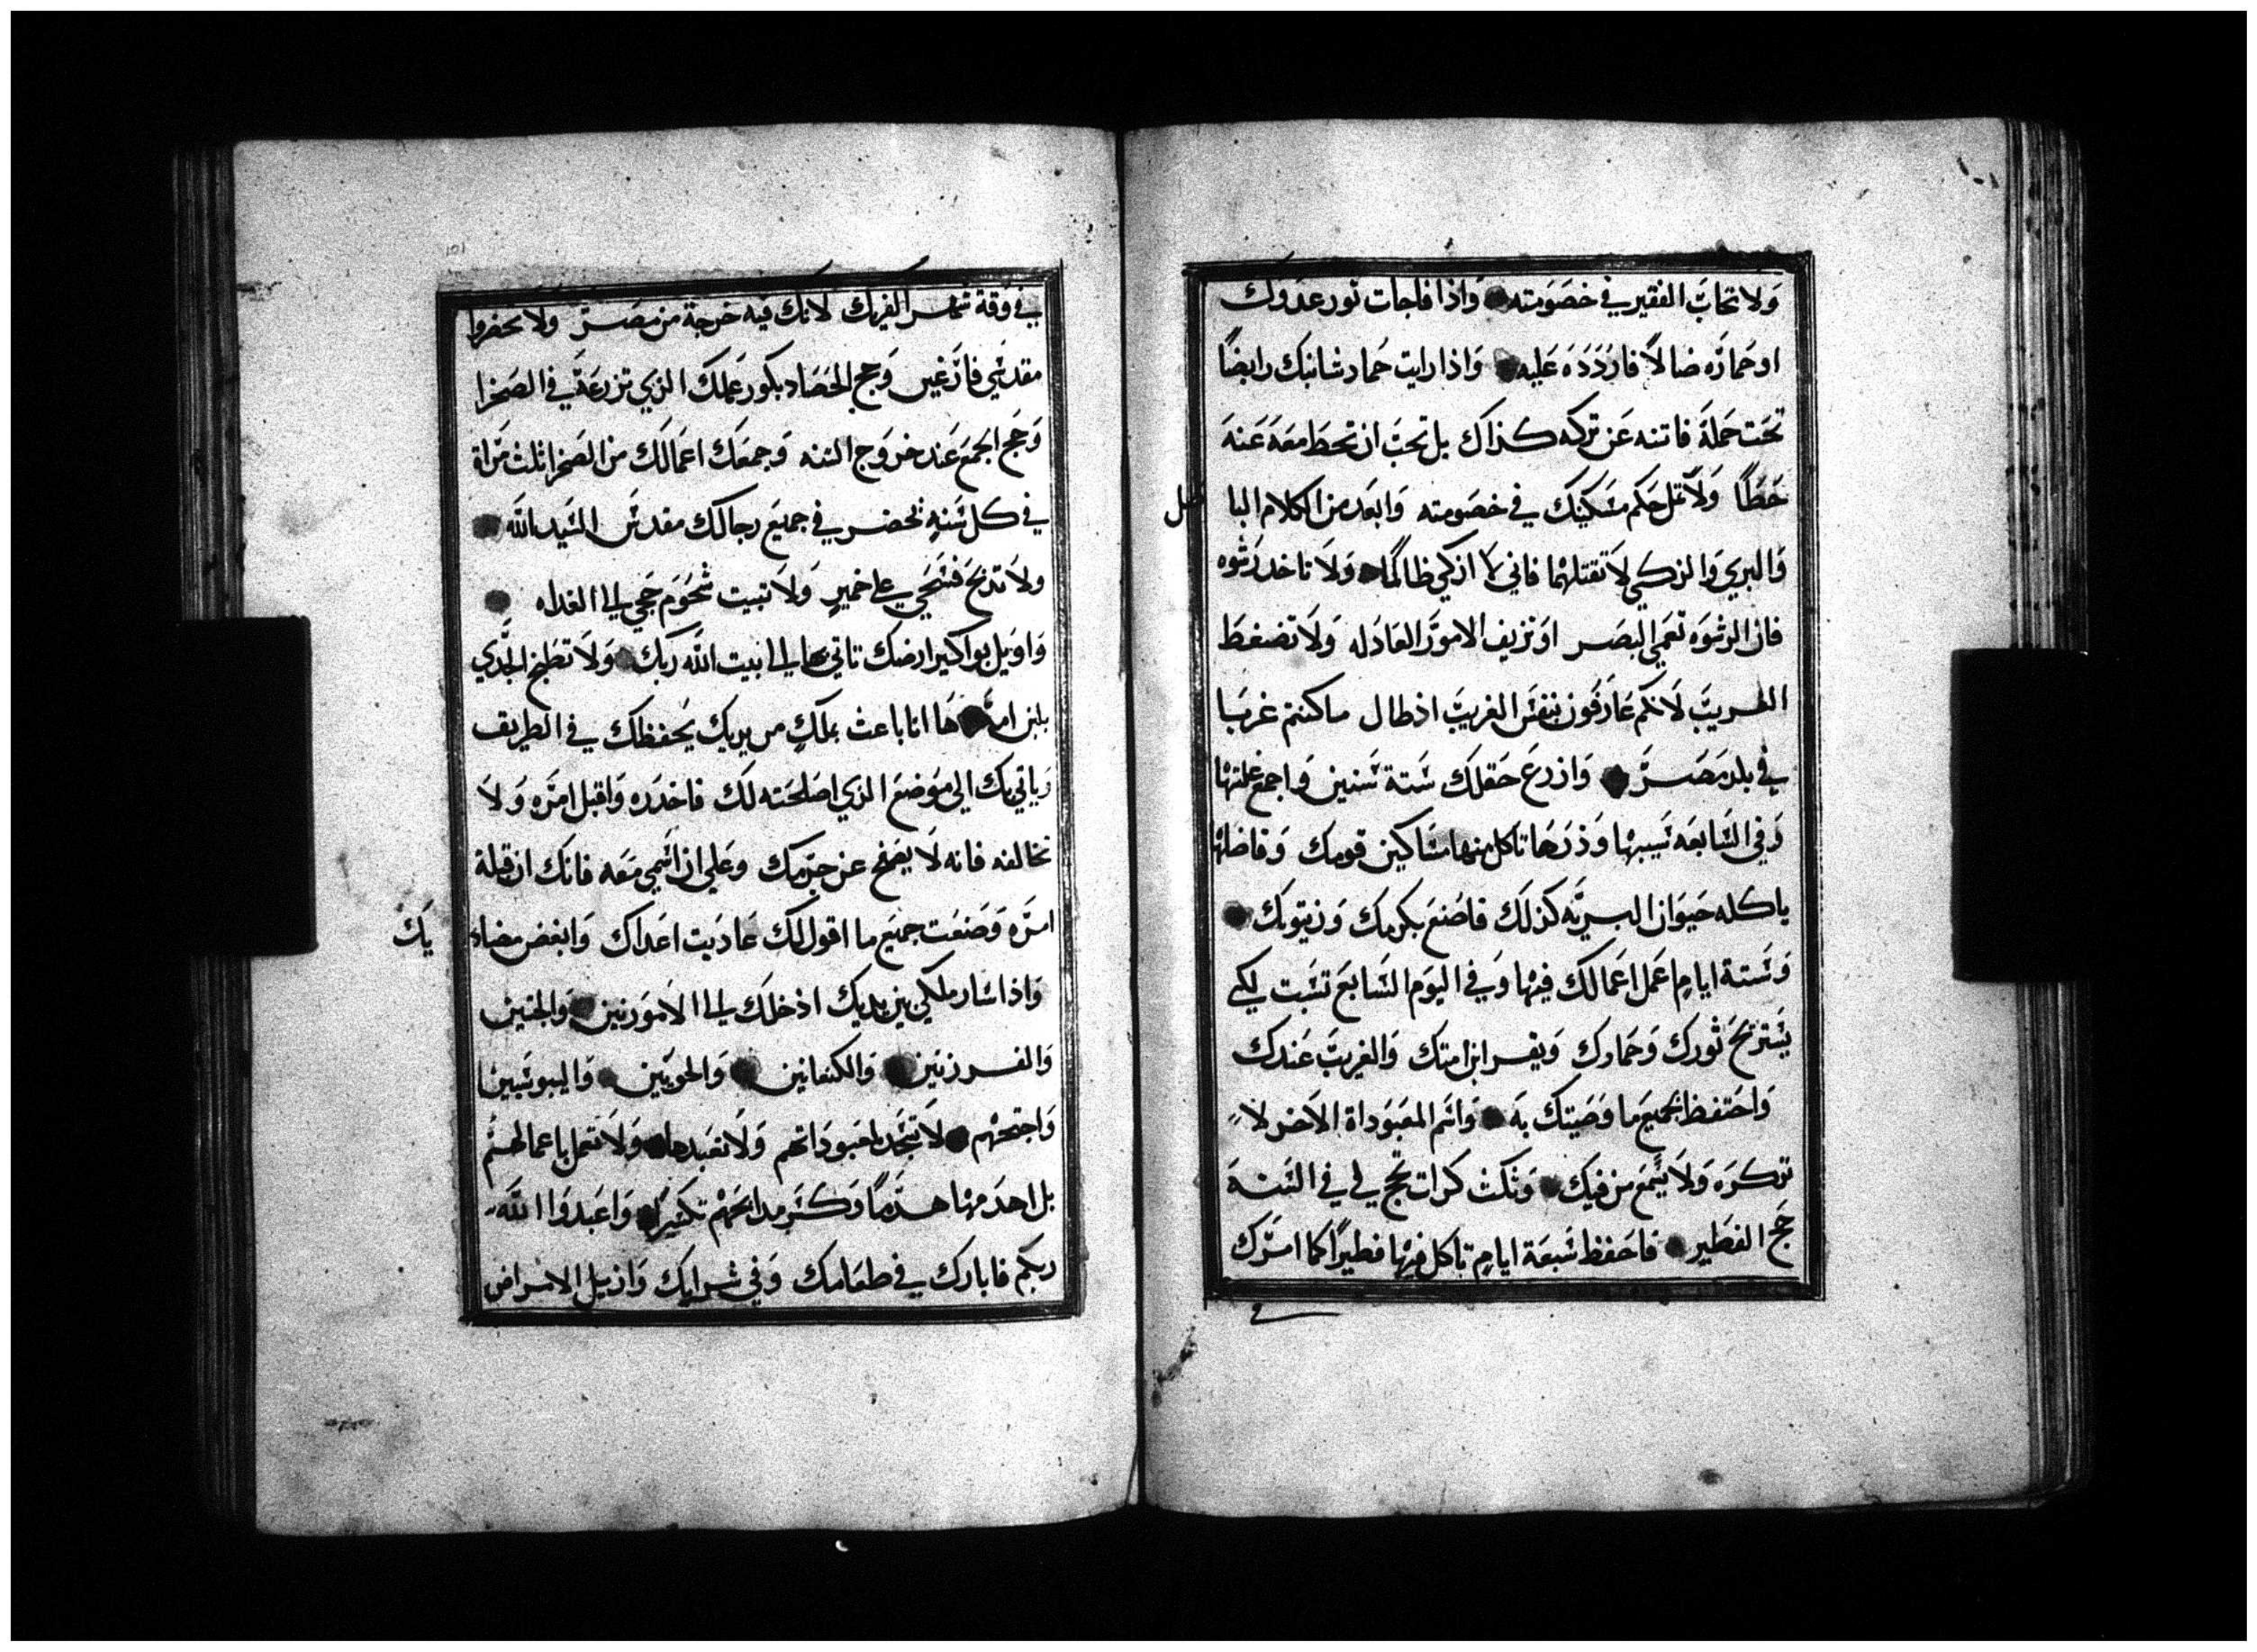 ولا تحاب الفقير في خصومته واذا فاجات ثور عدوك
او حماره ضالاً فاردده عليه واذا رايت حمار شانيك رابضاً
تحت حمله فاتنه عن تركه كذاك بل تحب ان تحط معه عنه
حطاً ولا تمل حكم مسكينك في خصومته وابعد من الكلام الباطل
والبري والزكي لا تقتلهما فاني لا ازكي ظالماً ولا تاخد رشوه
فان الرشوه تعمي البصر او تزيف الامور العادله ولا تضغط
الغريب لانكم عارفون بنفس الغريب اذ طال ما كنتم غربا
في بلد مصر وازرع حقلك سته سنين واجمع غلتها
وفي السابعه سيبها وذرها تاكل منها مساكين قومك وفاضلها
ياكله حيوان البريه كذلك فاصنع بكرمك وزيتونك
وستة ايام اعمل اعمالك فيها وفي اليوم السابع تسبت لكي
يستريح ثورك وحمارك ويقر ابن امتك والغريب عندك
واحتفظ بجميع ما وصيتك به واسم المعبوداة الاخر لا
تذكره ولا يسمع من فيك وثلث كرات تحج لي في السنه
حج الفطير فاحفظ سبعة ايام تاكل فيها فطيراً كما امرتك
في
101
في وقة شهر الفريك لانك فيه خرجة من مصر ولا يحضروا
مقدسي فارغين وحج الحصاد بكور عملك الذي تزرعه في الصحرا
وحج الجمع عند خروج السنه وجمعك اعمالك من الصحرا ثلث مراة
في كل سنه تحضر في جميع رجالك مقدس السيد الله
ولا تدبح فسحي على خمير ولا تبيت شحوم حجي الى الغداه
واويل بواكير ارضك تاتي بها الى بيت الله ربك ولا تطبخ الجدي
بلبن امه ها انا باعث بملك من يديك يحفظك في الطريق
وياتي بك الى موضع الذي اصلحته لك فاحدره واقبل امره ولا
تخالفه فانه لا يصفح عن جرمك وعلي ان اسمي معه فانك ان قبلة
امره وصنعت جميع ما اقول لك عاديت اعداك وابغض مضاديك
واذا سار ملكي بين يديك ادخلك الى الامورنين والحتيين
والفرزنين والكنعانين والحويين واليبوسيين
واجتحهم لا تسجد لمعبوداتهم ولا تعبدها ولا تعمل باعمالهم
بل اهدمها هدماً وكسر مدابحهم تكسيراً واعبدوا الله
ربكم فابارك في طعامك وفي شرابك وازيل الامراض